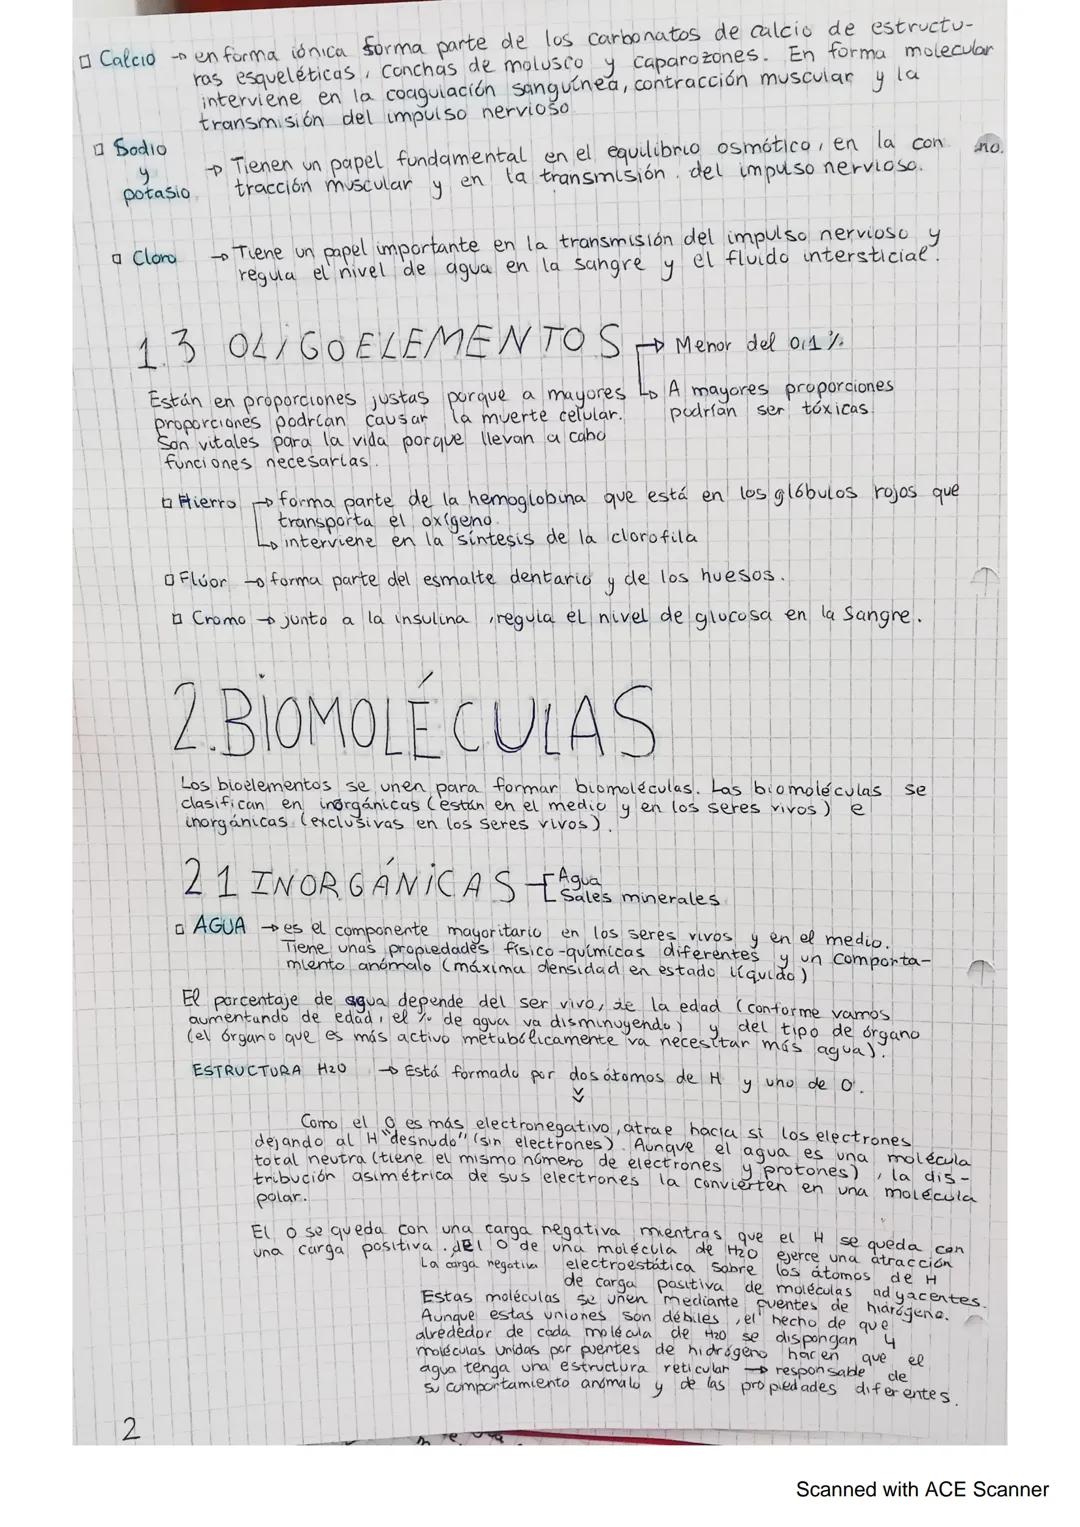 □ Calcio → en forma iónica forma parte de los carbonatos de calcio de estructu-
ras esqueléticas, conchas de molusco y caparozones. En forma molecular
interviene en la coagulación sanguínea, contracción muscular y la
transmisión del impulso nervioso
□ Sodio
y
potasio
→ Tienen un papel fundamental en el equilibrio osmótico, en la con
tracción muscular y en la transmisión del impulso nervioso.
no.
□ Cloro → Tiene un papel importante en la transmisión del impulso nervioso y
regula el nivel de agua en la sangre y el fluido intersticial.
1.3 OLIGOELEMENTOS → Menor del 0,1%
↳ A mayores proporciones
podrían ser tóxicas.
Están en proporciones justas porque a mayores
proporciones podrían causar la muerte celular.
Son vitales para la vida porque llevan a cabo
funciones necesarias.
□ Hierro → forma parte de la hemoglobina que está en los glóbulos rojos que
transporta el oxígeno.
↳ interviene en la síntesis de la clorofila
□ Flúor → forma parte del esmalte dentario y de los huesos.
□ Cromo → junto a la insulina, regula el nivel de glucosa en la sangre.
2. BIOMOLÉCULAS
Los bioelementos se unen para formar biomoléculas. Las biomoléculas se
clasifican en inorgánicas (están en el medio y en los seres vivos) e
inorgánicas (exclusivas en los seres vivos).
2.1 INORGÁNICAS [Agua
Sales minerales
□ AGUA → es el componente mayoritario en los seres vivos y en el medio.
Tiene unas propiedades físico-químicas diferentes y un comporta-
miento anómalo (máxima densidad en estado líquido)
El porcentaje de agua depende del ser vivo, de la edad (conforme vamos
aumentando de edad, el % de agua va disminuyendo) y del tipo de órgano
(el órgano que es más activo metabólicamente va necesitar más agua).
ESTRUCTURA H2O → Está formado por dos átomos de H y uno de O.
Como el O es más electronegativo, atrae hacia si los electrones
dejando al H "desnudo" (sin electrones). Aunque el agua es una molécula
total neutra (tiene el mismo número de electrones y protones), la dis-
tribución asimétrica de sus electrones la convierten en una molécula
polar.
El O se queda con una carga negativa mientras que el H se queda con
una carga positiva. del O de una molécula de H2O ejerce una atracción
La carga negativa electroestática sobre los átomos de H
de carga positiva de moléculas adyacentes.
Estas moléculas se unen mediante puentes de hidrógeno.
Aunque estas uniones son débiles, el hecho de que
alrededor de cada molécula de H2O se dispongan 4
moléculas unidas por puentes de hidrógeno hacen que el
agua tenga una estructura reticular → responsable de
su comportamiento anómalo y de las propiedades diferentes.
2
Scanned with ACE Scanner